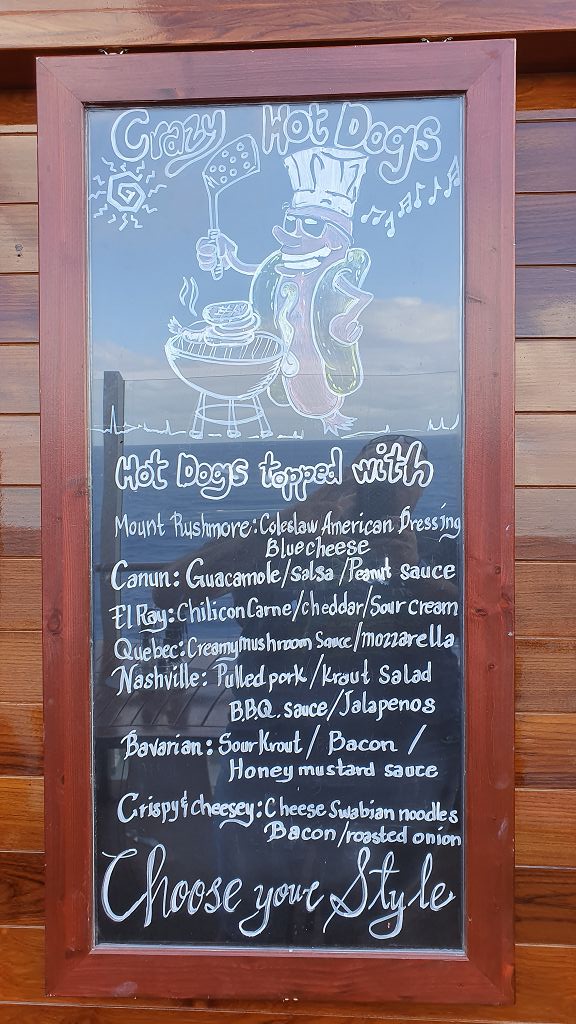 Crazy Hot Dogs
Hot Dogs topped with
Mount Rushmore: Coleslaw American Dressing
Blue cheese
Canun: Guacamole/salsa/Peanut sauce
El Ray: Chili con Carne/cheddar/Sour cream
Quebec: Creamy mushroom Sauce/mozzarella
Nashville: Pulled pork/Kraut Salad
B.B.Q. sauce/Jalapenos
Bavarian: Sour Krout/ Bacon /
Honey mustard sauce
Crispy & cheesey: Cheese Swabian noodles
Bacon/roasted onion
Choose your Style